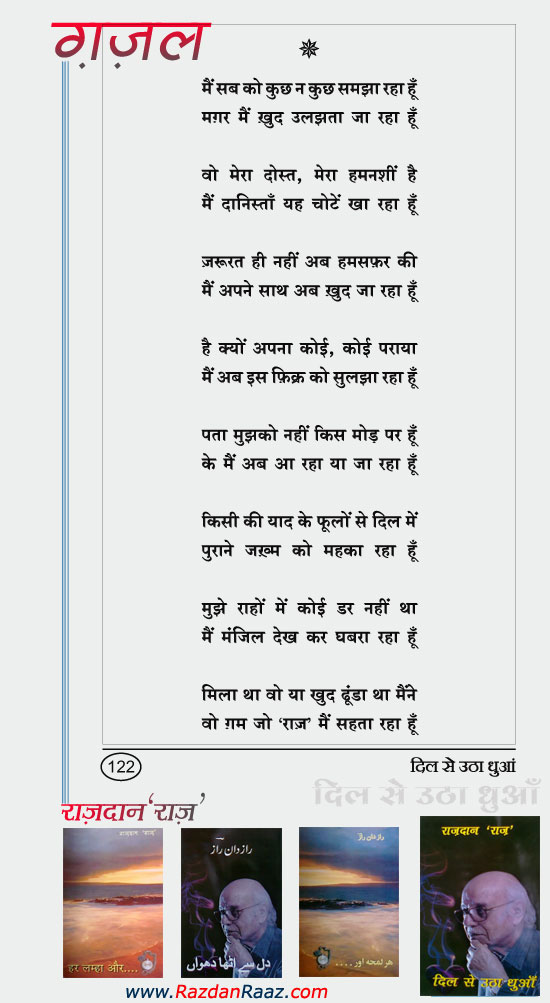 ग़ज़ल
मैं सब को कुछ न कुछ समझा रहा हूँ
मग़र मैं ख़ुद उलझता जा रहा हूँ
वो मेरा दोस्त, मेरा हमनशीं है
मैं दानिस्ताँ यह चोटें खा रहा हूँ
ज़रूरत ही नहीं अब हमसफ़र की
मैं अपने साथ अब ख़ुद जा रहा हूँ
है क्यों अपना कोई, कोई पराया
मैं अब इस फ़िक्र को सुलझा रहा हूँ
पता मुझको नहीं किस मोड़ पर हूँ
के मैं अब आ रहा या जा रहा हूँ
किसी की याद के फूलों से दिल में
पुराने जख़्म को महका रहा हूँ
मुझे राहों में कोई डर नहीं था
मैं मंजिल देख कर घबरा रहा हूँ
मिला था वो या खुद ढूंडा था मैंने
वो ग़म जो ‘राज़’ मैं सहता रहा हूँ
122
दिल से उठा धुआं
दिल से उठा धुआँ
राज़दान ‘राज़’
राज़दान ‘राज़’
हर लम्हा और....
رازدان راز
دل سے اٹھا دھواں
رازدان راز
ہر لمحہ اور....
राज़दान ‘राज़’
दिल से उठा धुआँ
www.RazdanRaaz.com